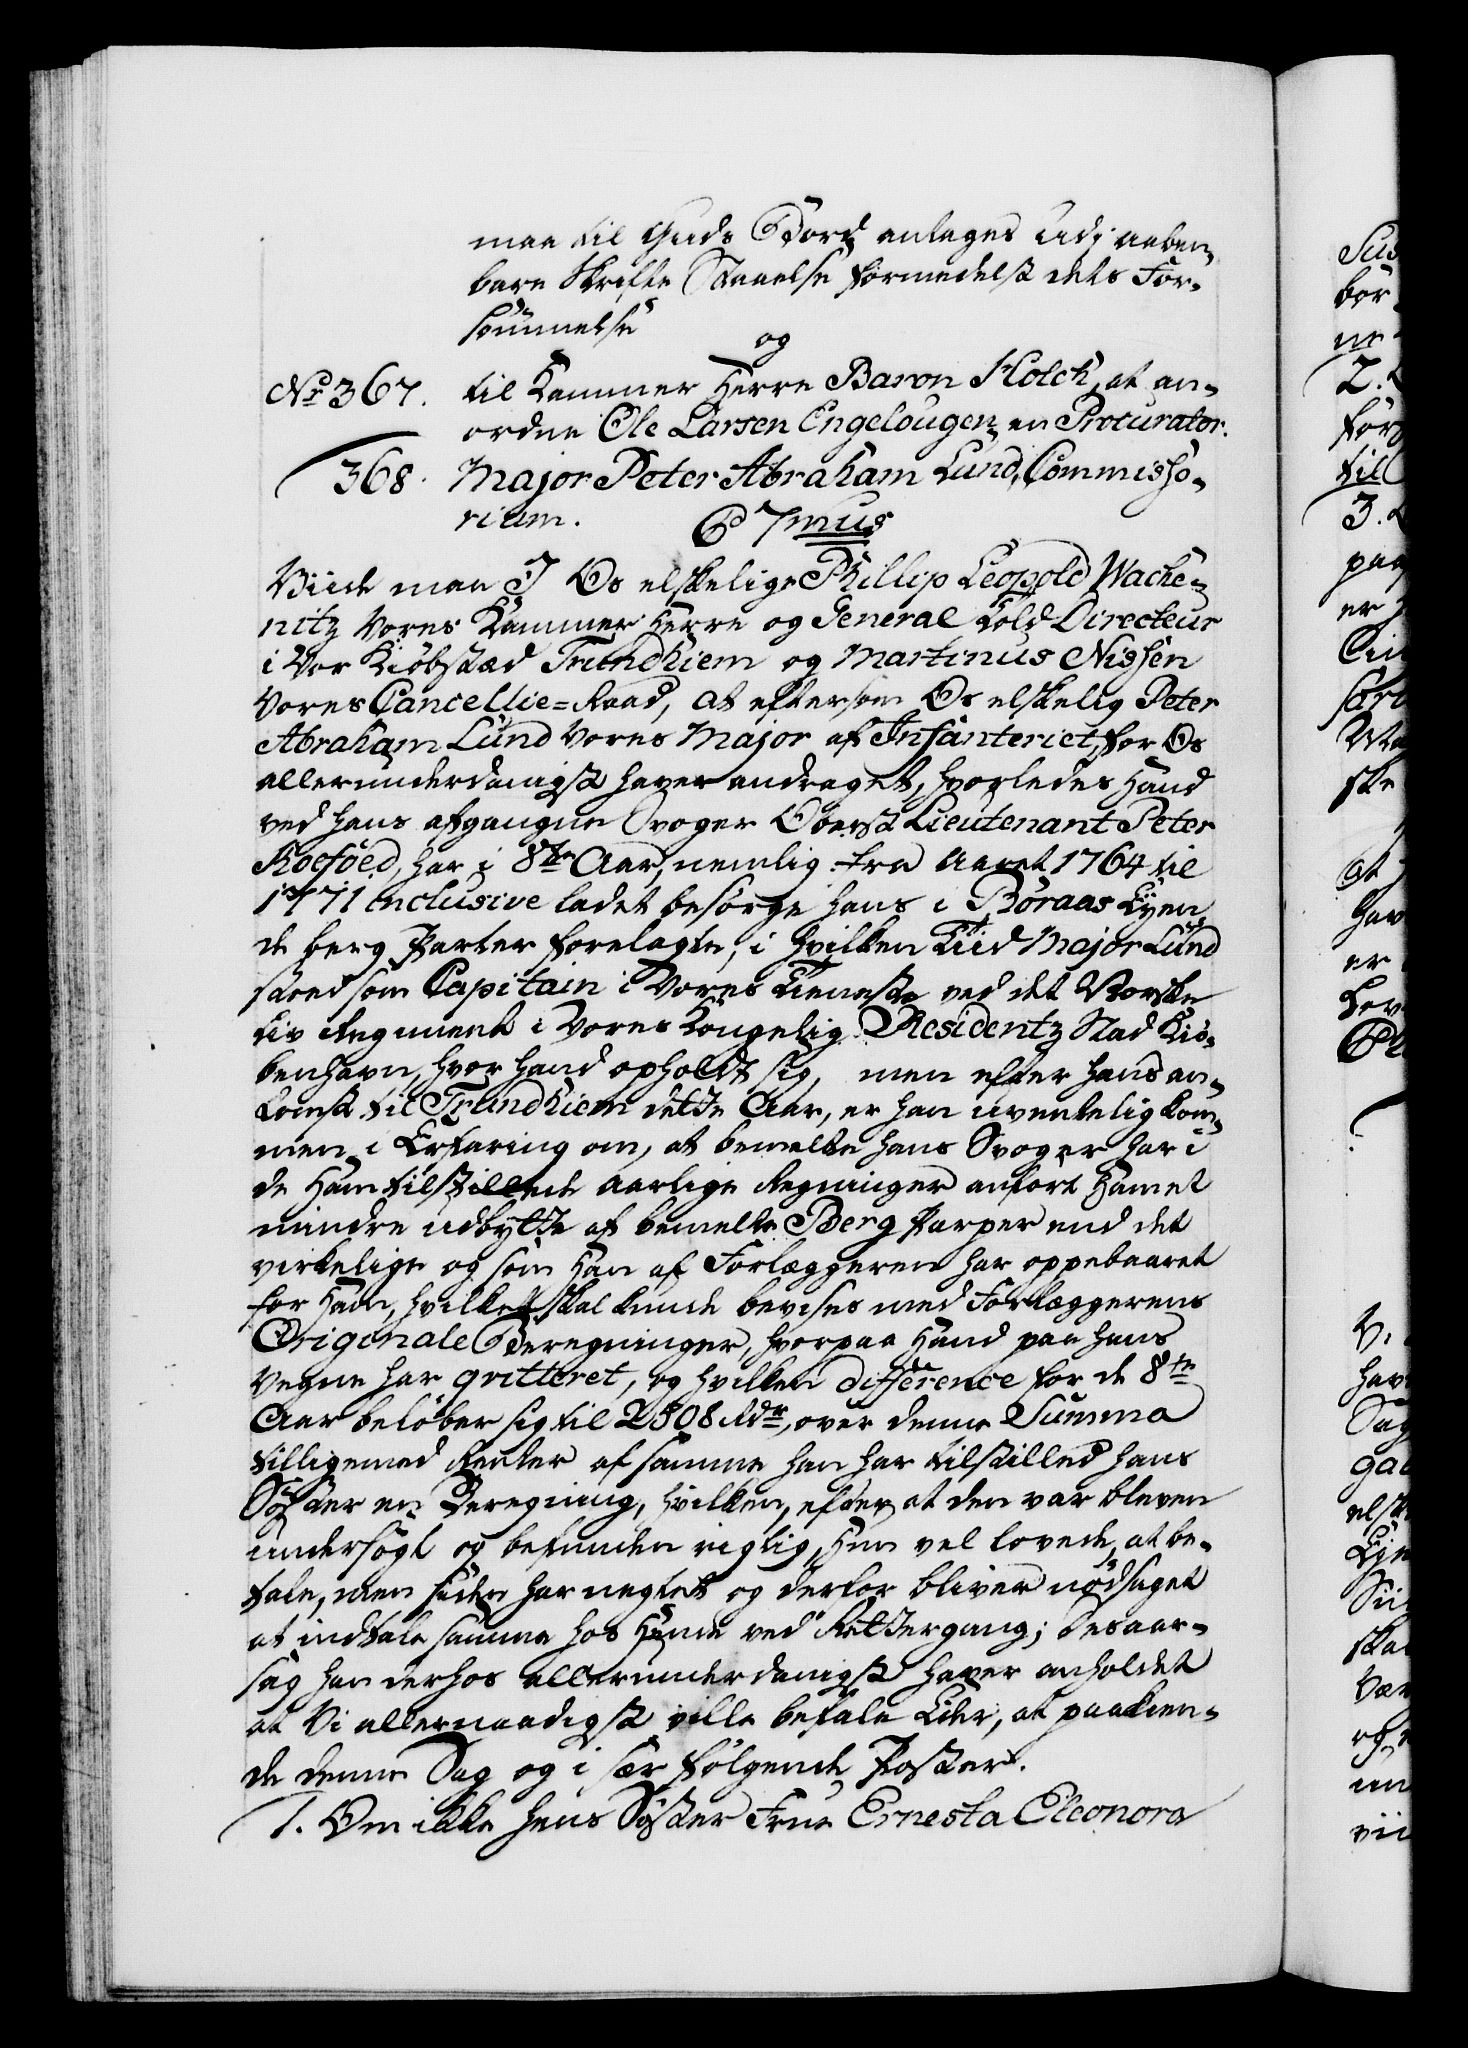 maa til Guds Bord antages udj aaben-
bare Skrifte Staaelse formedelst dets For-
sømmelse
og
No 367. til Kammer Herre Baron Holck, at an-
ordne Ole Larsen Engelougen en Procurator.
368. Major Peter Abraham Lund, Commisso-
rium. C 7mus
Viide maa I Os elskelige Phillip Leopold Wacke-
nitz Vores Kammer Herre og General Told Directeur
i Vor Kiøbstæd Trundhiem og Martinus Nissen
Vores Cancellie-Raad, at eftersom Os elskelig Peter
Abraham Lund Vores Major af Infanteriet, for Os
allerunderdanigst haver andraget, hvorledes Hand
ved hans afgangne Svoger Oberst Lieutenant Peter
Koefoed, har i 8te Aar, nemlig fra Aaret 1764 til
1771 inclusive ladet besørge hans i Røraas Eyen-
de berg Parter forelagte, i hvilken Tiid Major Lund
stoed som Capitain i Vores Tieneste ved det Norske
Liv Regiment i Vores Kongelig Residentz Stad Kiø-
benhavn, hvor Hand opholdt sig, men efter hans an-
komst til Trundhiem dette Aar, er han uventelig kom-
men i Erfaring om, at bemelte hans Svoger har i
de Ham tilstillede aarlige Regninger anført Hamet
mindre udbytte af bemelte Berg Parter end det
virkelige og som Han af Forlæggeren har oppebaaret
for Ham, hvilket skal kunde bevises med Forlæggerens
Originale Beregninger, hvorpaa Hand paa hans
Vegne har qvitteret, og hvilken difference for de 8te
Aar beløber sig til 2808 Rdr, over denne Summa
tilligemed Renter af samme han har tilstilled hans
Søster en Beregning, hvilken, efter at den var bleven
undersøgt og befunden rigtig, Hun vel lovede, at be-
tale, men siden har negtet og derfor bliver nødsaget
at indtale samme hos Hende ved Rettergang; desaar-
sag han derhos allerunderdanigst haver anholdet
at Vi allernaadigst ville befale Eder, at paakien-
de denne Sag og i sær følgende Poster.
1. Om ikke hans Søster Frue Ernesta Eleonora